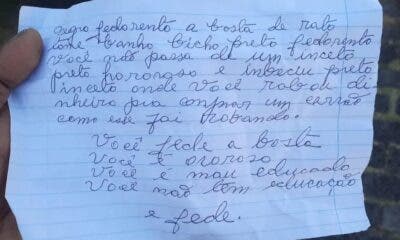 negro fedorento a bosta de rato
tome banho bicho preto fedorento
você não passa de um inceto
preto porongo e inbeciu preto
inceto onde você robou di
nheiro pra comprar um carrão
como esse foi robando.
Você fede a bosta
Você é ororoso
Você é mau educado
Você não tem educação
e fede.